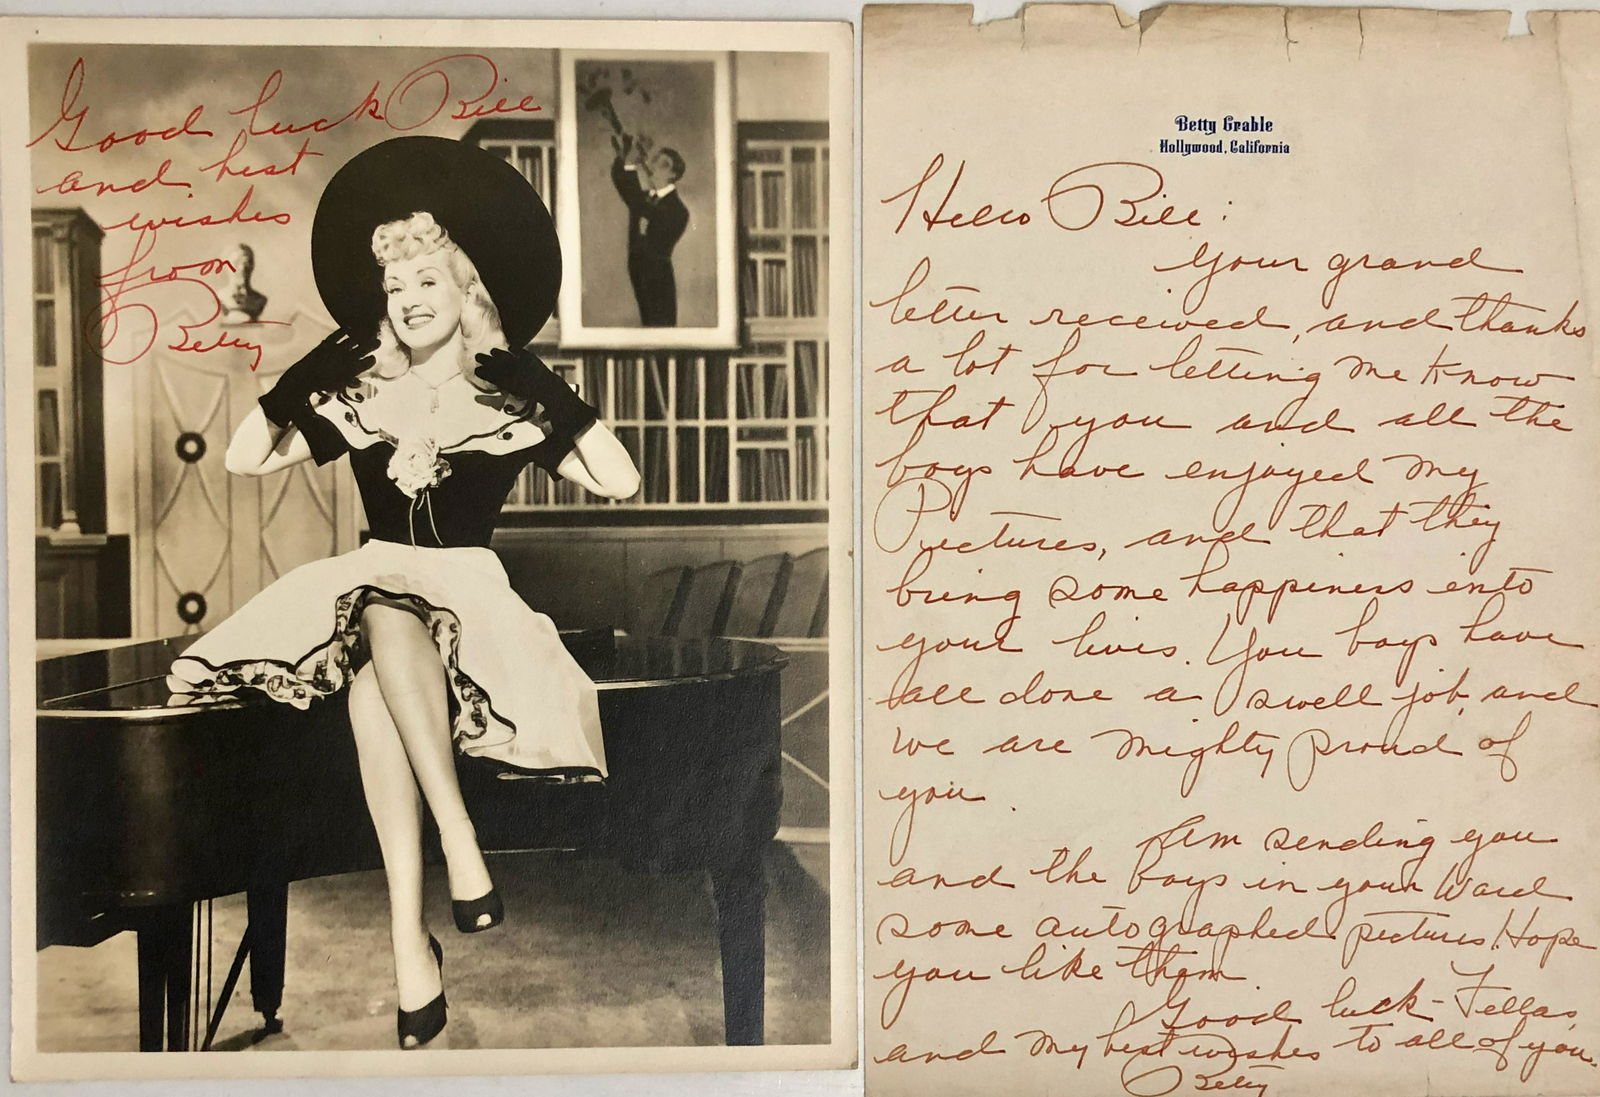 Good luck Bill
and best
wishes
from
Betty
Betty Grable
Hollywood, California
Hello Bill:
Your grand
letter received, and thanks
a lot for letting me know
that you and all the
boys have enjoyed my
Pictures, and that they
bring some happiness into
your lives. You boys have
all done a swell job, and
we are mighty proud of
you.
Am sending you
and the boys in your Ward
some autographed pictures. Hope
you like them
Good luck - Fellas,
and my best wishes to all of you.
Betty